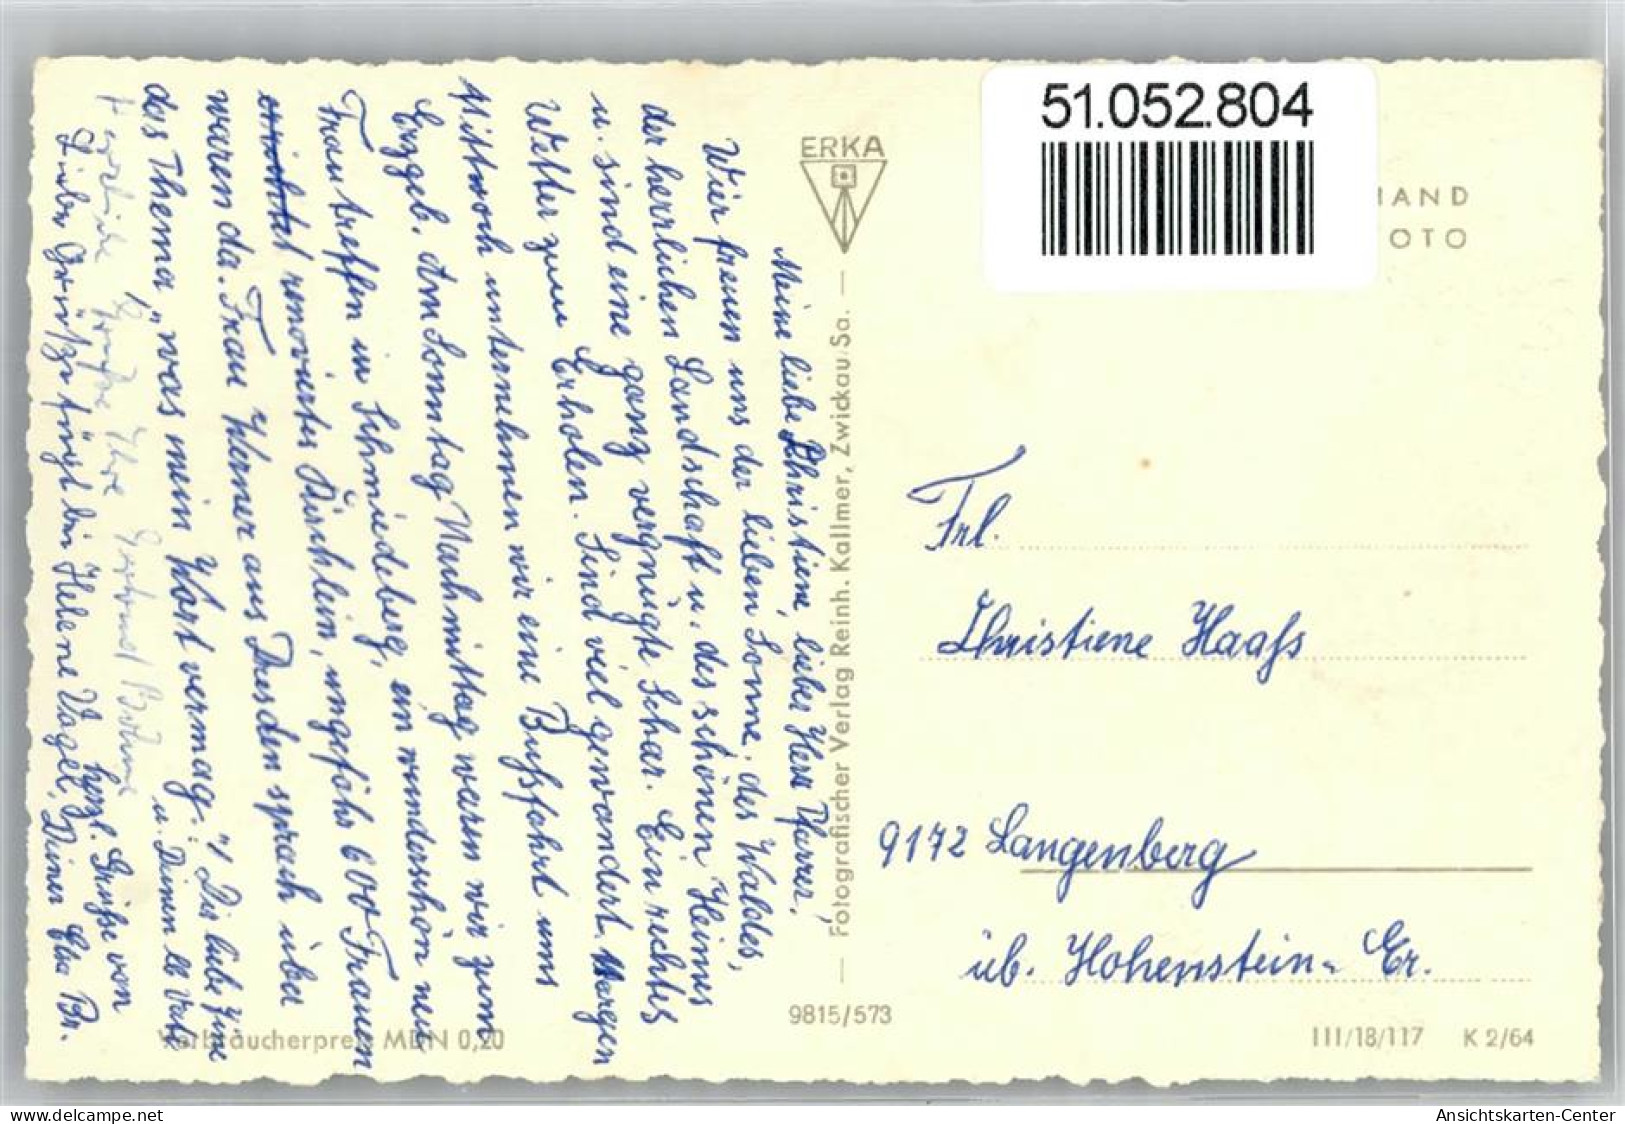 Meine liebe Christiene, lieber Herr Pfarrer!
Wier freuen uns der lieben Sonne, des Waldes,
der herrlichen Landschaft u. des schönen Heimes
u. sind eine ganz vergnügte Schar. Ein rechtes
Wetter zum Erholen. Sind viel gewandert. Morgen
Mittwoch unternehmen wir eine Bußfahrt ums
Erzgeb. Am Sonntag Nachmittag waren wir zum
Frauentreffen in Schmiedeberg, ein wunderschön neu
renoviertes Kirchlein, ungefähr 600 Frauen
waren da. Frau Werner aus Dresden sprach über
das Thema, „was mein Wort vermag." Dir liebe
u. Deinem lb Vati
herzl. Grüße von
Herzliche Grüße Ihre
Liebe Grüße fügt bei Helene Vogel, Deiner Elsa Br.
ERKA
— Fotografischer Verlag Reinh. Kallmer, Zwickau/Sa. —
9815/573
Verbraucherpreis MDN 0,20
51.052.804
HAND
OTO
Frl.
Christiene Haaß
9172 Langenberg
üb. Hohenstein-Er.
III/18/117 K 2/64
www.delcampe.net
Ansichtskarten-Center